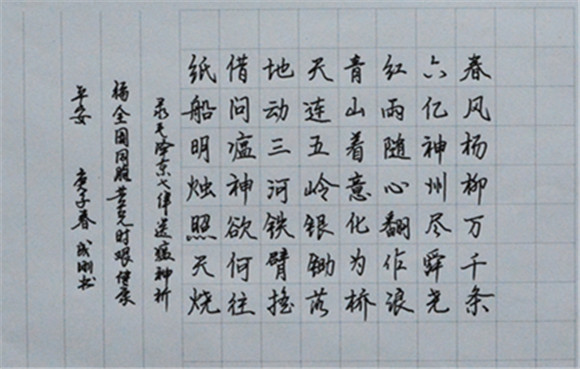 春风杨柳万千条
六亿神州尽舜尧
红雨随心翻作浪
青山着意化为桥
天连五岭银锄落
地动三河铁臂摇
借问瘟神欲何往
纸船明烛照天烧
录毛泽东七律送瘟神祈
全国同胞共克时艰健康
平安 庚子春 成刚书